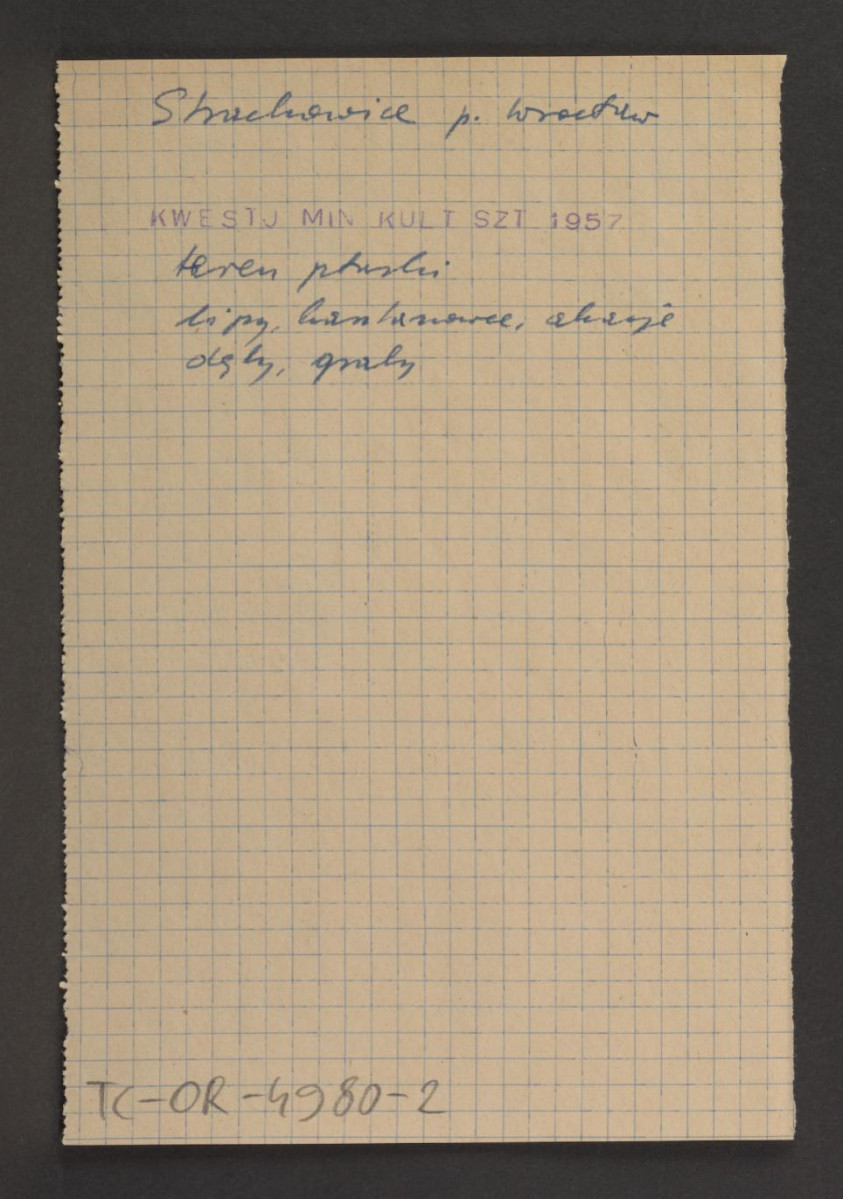 Strachowice p. Wrocław
KWESTJ MIN KULT SZT 1957
teren płaski
lipy, kasztanowce, akacje
dęby, graby
TC-OR-4980-2